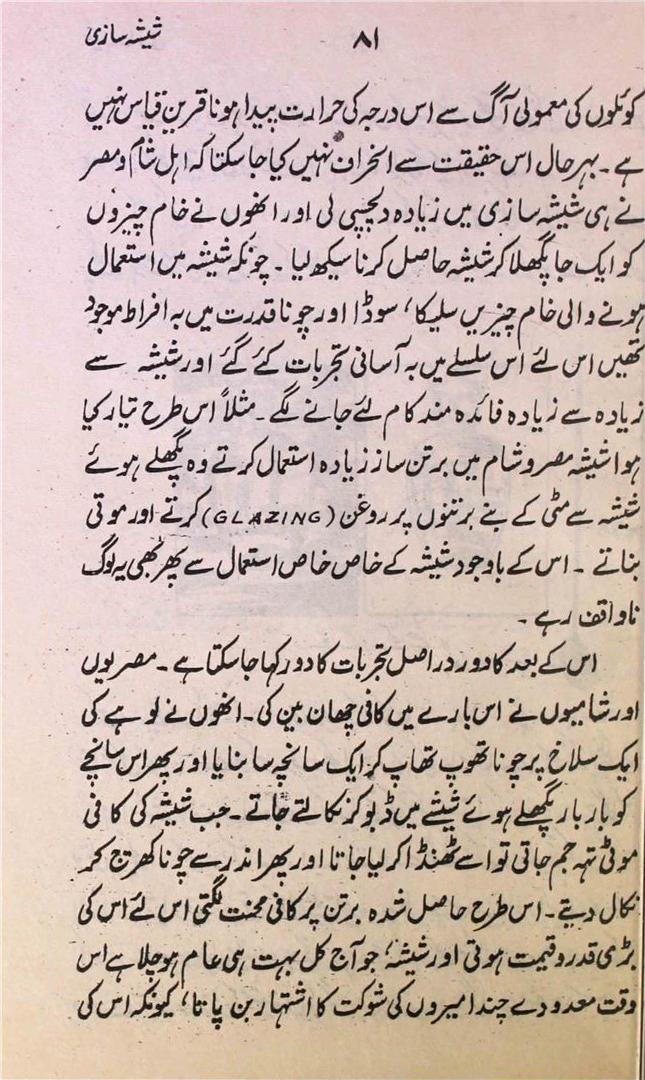 شیشہ سازی
۸۱
کوئلوں کی معمولی آگ سے اس درجہ کی حرارت پیدا ہونا قرینِ قیاس نہیں
ہے ۔ بہرحال اس حقیقت سے انحراف نہیں کیا جا سکتا کہ اہل شام و مصر
نے ہی شیشہ سازی میں زیادہ دلچسپی لی اور انھوں نے خام چیزوں
کو ایک جا پگھلا کر شیشہ حاصل کرنا سیکھ لیا ۔ چونکہ شیشہ میں استعمال
ہونے والی خام چیزیں سلیکا، سوڈا اور چونا قدرت میں بہ افراط موجود
تھیں اس لئے اس سلسلے میں بہ آسانی تجربات کئے گئے اور شیشہ سے
زیادہ سے زیادہ فائدہ مند کام لئے جانے لگے ۔ مثلاً اس طرح تیار کیا
ہوا شیشہ مصر و شام میں برتن ساز زیادہ استعمال کرتے وہ پگھلے ہوئے
شیشہ سے مٹی کے بنے برتنوں پر روغن (GLAZING) کرتے اور موتی
بناتے ۔ اس کے باوجود شیشہ کے خاص خاص استعمال سے پھر بھی یہ لوگ
ناواقف رہے ۔
اس کے بعد کا دور دراصل تجربات کا دور کہا جا سکتا ہے ۔ مصریوں
اور شامیوں نے اس بارے میں کافی چھان بین کی ۔ انھوں نے لوہے کی
ایک سلاخ پر چونا تھوپ تھاپ کر ایک سانچہ سا بنایا اور پھر اس سانچے
کو بار بار پگھلے ہوئے شیشے میں ڈبو کر نکالتے جاتے ۔ جب شیشہ کی کافی
موٹی تہہ جم جاتی تو اسے ٹھنڈا کر لیا جاتا اور پھر اندر سے چونا کھرچ کر
نکال دیتے ۔ اس طرح حاصل شدہ برتن پر کافی محنت لگتی اس لئے اس کی
بڑی قدر و قیمت ہوتی اور شیشہ، جو آج کل بہت ہی عام ہو چلا ہے اس
وقت معدودے چند امیروں کی شوکت کا اشتہار بن پاتا، کیونکہ اس کی